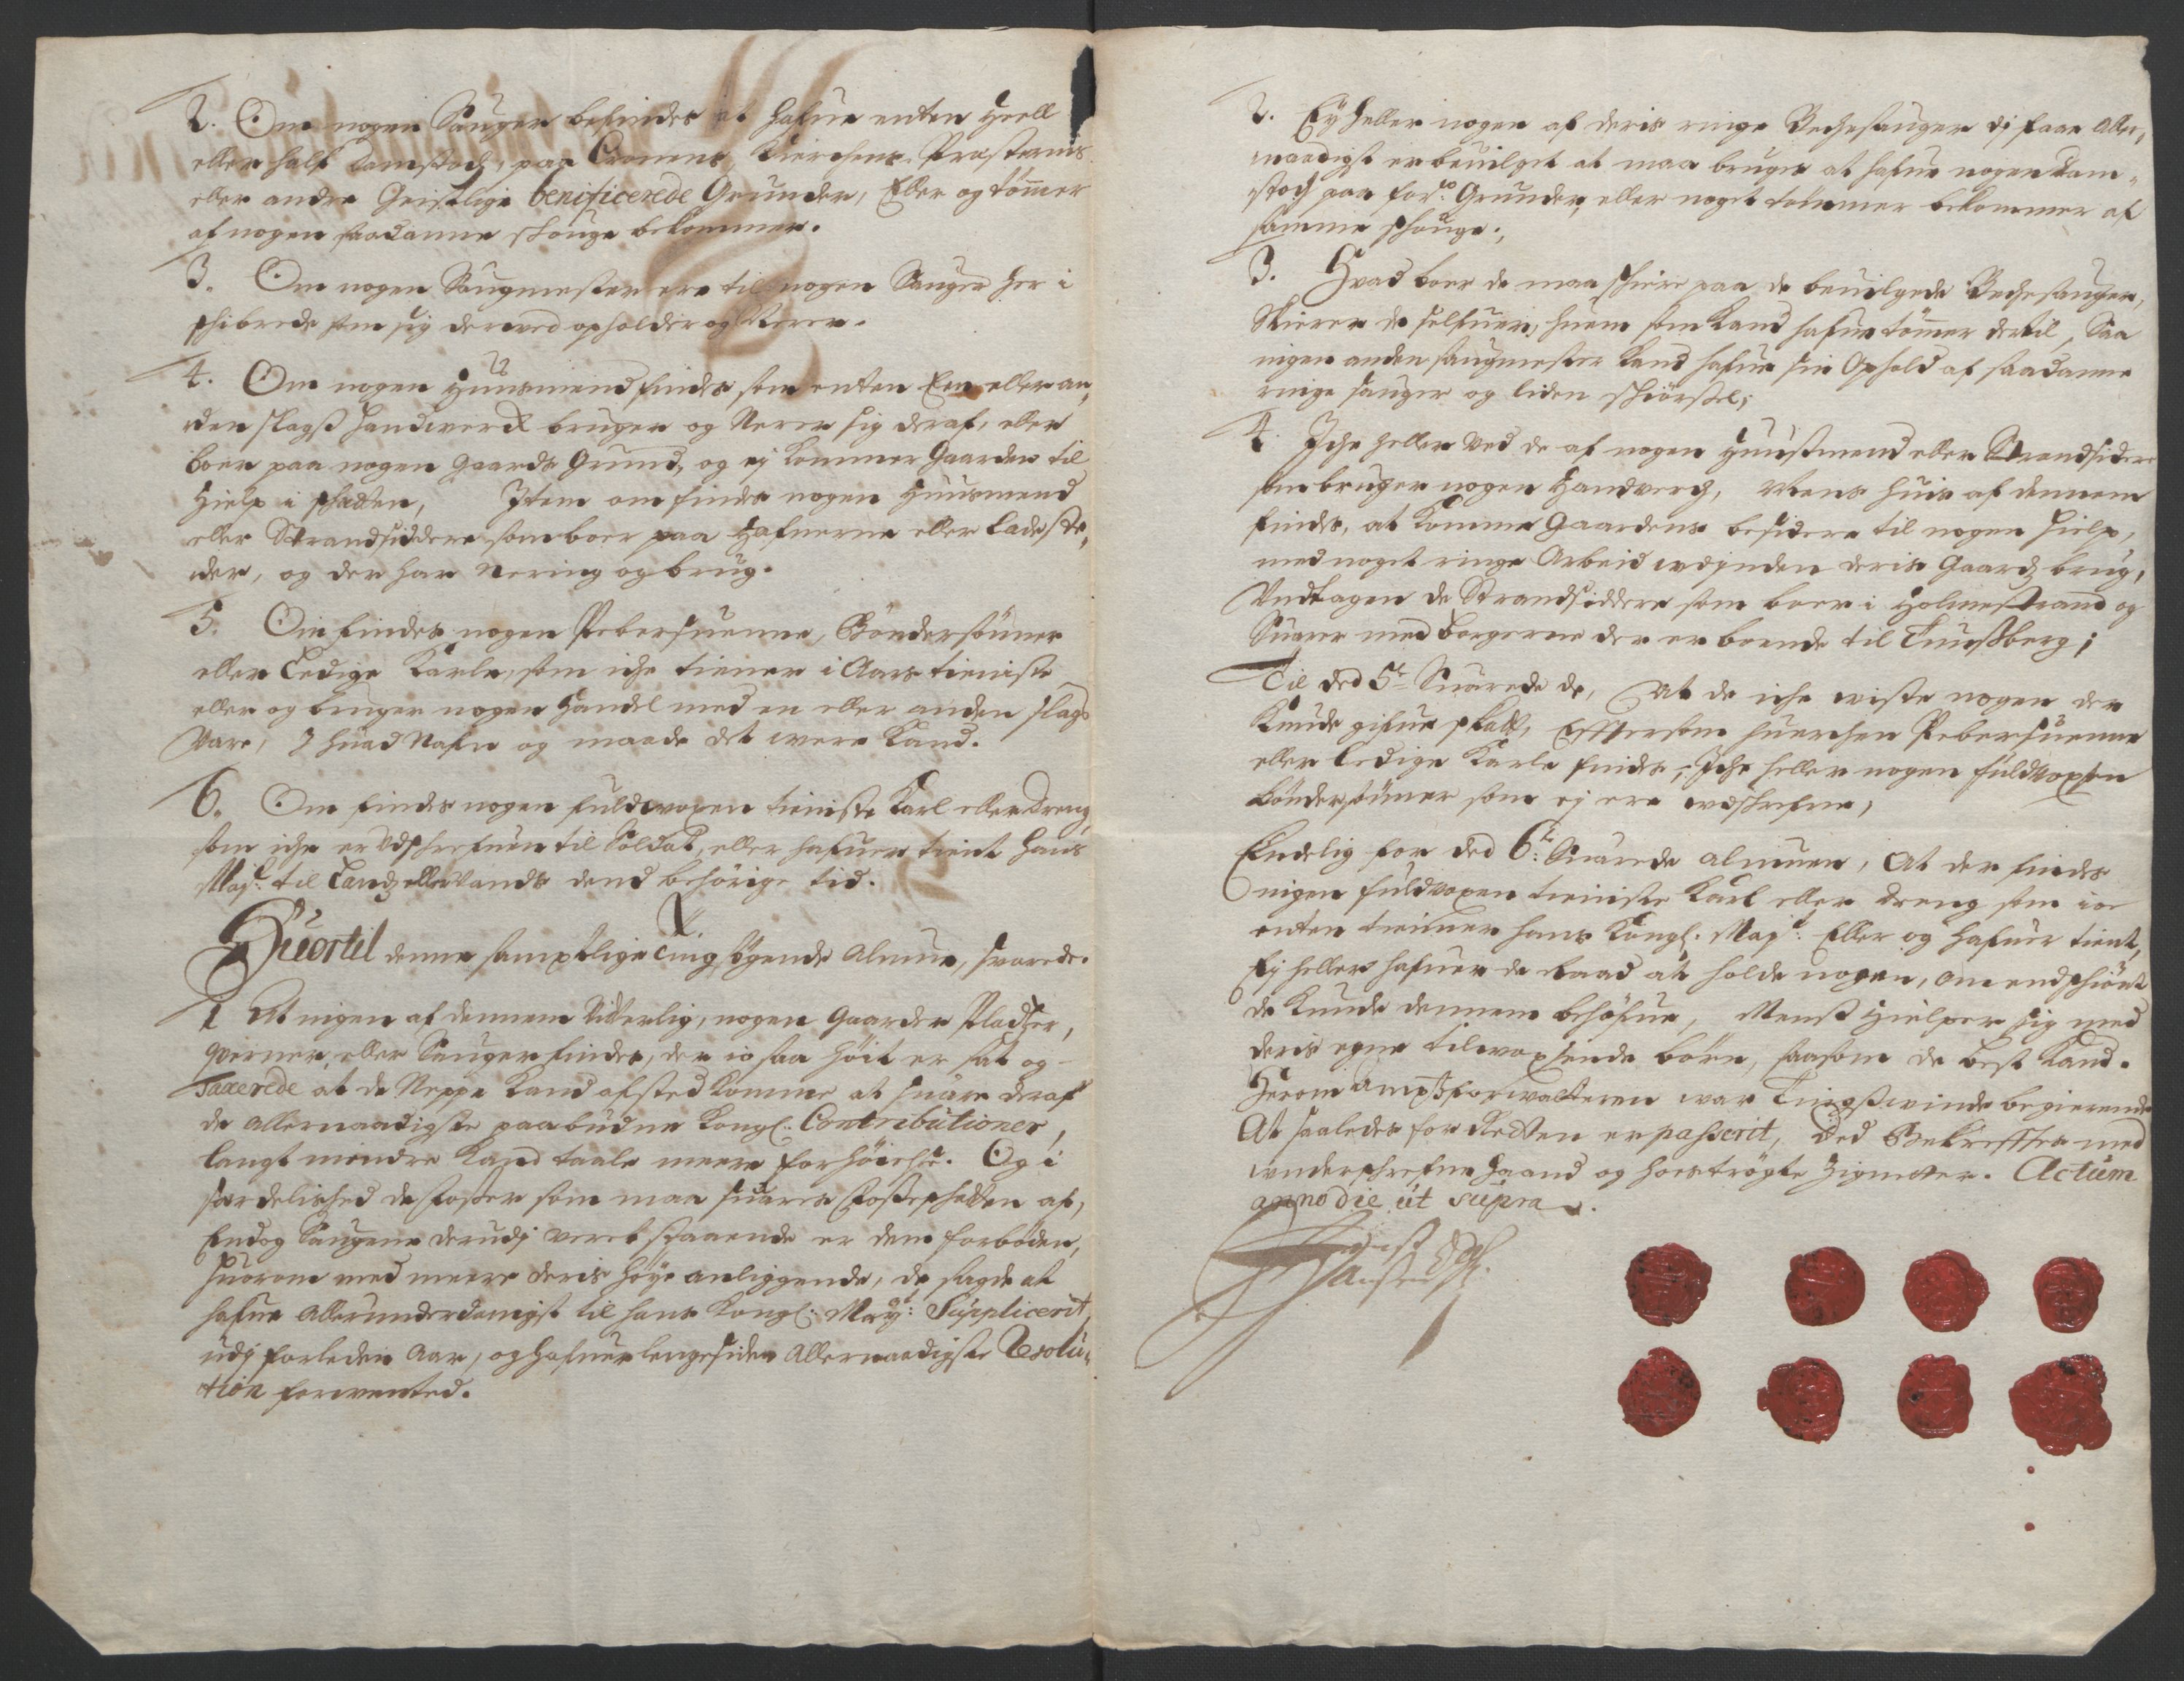 2. Om nogen Sauger befindes at hafue enten heell
eller half Damstoch, paa Cronens, Kierchens, Præsternis
eller andre Geistlige beneficerede Grunder, Eller og tømer
af nogen saadanne schouge bekommer.
3. Om nogen Saugmester ere til nogen Sauger her i
schibrede som sig derved opholder og Nerer.
4. Om nogen Huusmend findes som enten Een eller an,
den slags Handwerch bruger og Nerer sig deraf, eller
boer paa nogen Gaards Grund, og ej kommer Gaarden til
hielp i schatten, Item om findes nogen Huusmend
eller Strandsiddere som boer paa Hafnerne eller Ladeste,
der, og der har Nering og brug.
5. Om findes nogen Pebersuenne, Bøndersønner
eller Ledige Karle, som iche tiener i Aars tieniste
eller og bruger nogen Handel med en eller anden slags
Vare, I huad Nafn og maade det were kand.
6. Om findes nogen fuldwoxen tieniste Karl eller dreng
som iche er Udschrefuen til Soldat, eller hafuer tient Hans
Majt: til Landz eller Vands dend behørige tid.
Huortil denne samptlige Ting søgende Almue, svarede.
1 At ingen af dennem Vitterlig, nogen Gaarder Pladtzer,
qverner, eller Sauger findes, der io saa høit er sat og
Taxerede at de Neppe kand afsted komme at suare deraf
de allernaadigste paabudne Kongl: Contributioner,
langt mindre kand taale meere forhøielse. Og i
særdelished de Fosser som maa suares Fosseschatten af,
Endog Saugene derudj verckstaaende er dem forbøden,
huorom med meere deris høye anliggende, de sagde at
hafue allerunderdanigst til hans Kongl: Mayt: Suppliceret,
udj forleden Aar, og hafuer lenge siden allernaadigste Resolu,
tion forwented.
2. Ey heller nogen af deris ringe Bechesauger di faar aller,
naadigst er beuilget at maa bruges at hafue nogen dam,
stoch paa fors: Grunder, eller noget tømmer bekommer af
samme schouge.,
3. Hvad boer de maa schiere paa de beuilgede Bechesauger,
Skierer de selfuer, huem som kand hafue tømer dertil, Saa
ingen anden saugmester kand hafue sin Ophold af saadanne
ringe sauger og liden schiørsel;
4. Iche heller ved de af nogen Huusmend eller Strandsidere
som bruger nogen Handverch, Mens huis af dennem
findes, at komme Gaardens besidere til nogen hielp,
med noget ringe Arbeid wdj inden deris Gaards brug,
Undtagen de Strandsiddere som boer i Holmestrand og
Suarer med borgerne der er boende til Tunsberg;
Til ded 5te Suarede de, At de iche wiste nogen der
kunde gifue schatt, Efftersom huerchen Pebersuenne
eller ledige Karle findes; Iche heller nogen fuldwoxsen
bøndersønner som ej ere wdschrefne,
Endelig for ded 6te: Suarede almuen, At der findes
ingen fuldwoxen tieniste Karl eller dreng som ioe
enten tienner hans Kongl: Mayt: Eller og hafuer tient,
Ej heller hafuer de Raad at holde nogen, om endschiønt
de kunde dennem behøfue, Menss hielper sig med
deris egne tilwoxsende børn, saasom de best kand.
Herom Amptsforwalteren war Tingswinde begierende
At saaledes for Retten er passerit, Ded Bekreffter med
underschrefne haand og hostrøgte Zigneter. Actum
anno die ut supra.